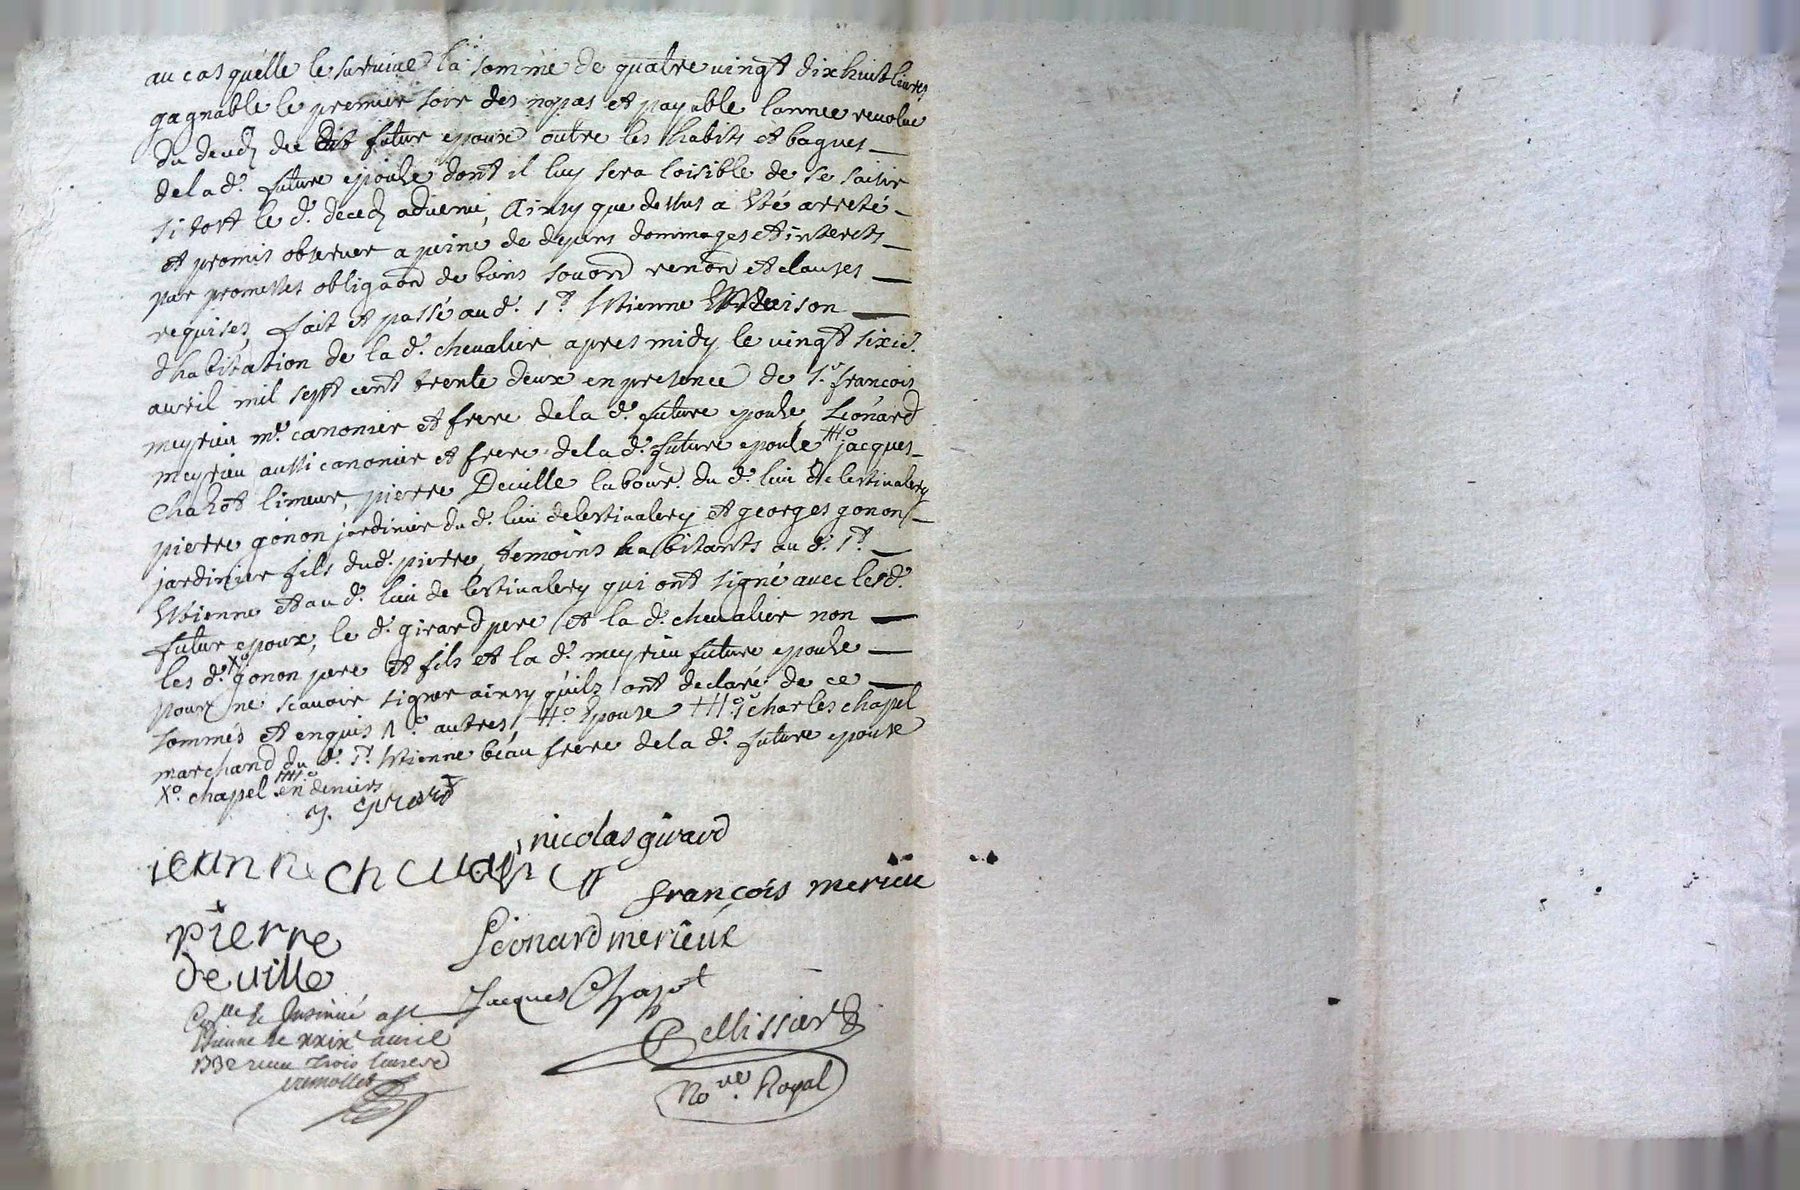 au cas quelle le survive la somme de quatre vingt dix huit livres
gagnable le premier soir des nopces et payable lannee revolue
du deceds du dit futur epoux outre les habits et bagues
de la d.e future epouse dont il luy sera loisible de se saisir
si tost le d.t deceds advenu, Ainsy que dessus a esté arreté
et promis observer a peine de depens dommages et interets
par promesses obligaon de biens soum renon et clauses
requises, fait et passé au d.t S.t Estienne maison
d'habitation de la d.e chevalier apres midy le vingt sixie.
avril mil sept cent trente deux en presence de S.r françois
meyrieu m.e canonier et frere de la d.e future epouse, Leonard
meyrieu aussi canonier et frere de la d.e future epouse #o jacques
Chazot limeur, pierre Deville labour.r du d.t lieu de lestivalery
pierre gonon jardinier du d.t lieu de lestivalery et georges gonon
jardinier fils dud.t pierre, temoins habitants au d.t S.t
Estienne et au d.t lieu de lestivalery qui ont signé avec le d.t
futur epoux, le d.t girard pere et la d.e chevalier non
les d.ts Xo gonon pere et fils et la d.e meyrieu future epouse
pour ne scavoir signer ainsy qu'ils ont declaré de ce
sommés et enquis autres #o Epouse ##o S.r charles chapel
marchand du d.t S.t Estienne beau frere de la d.e future epouse
Xo. chapel en deniers
J. girard
nicolas girard
jeanne chevalier
françois merieu
pierre
deville
Léonard merieue
Jacques Chazot
Con.lle & Insinué a St
Etienne le xxix avril
1732 recu trois livres
Pellissier
No.re Royal